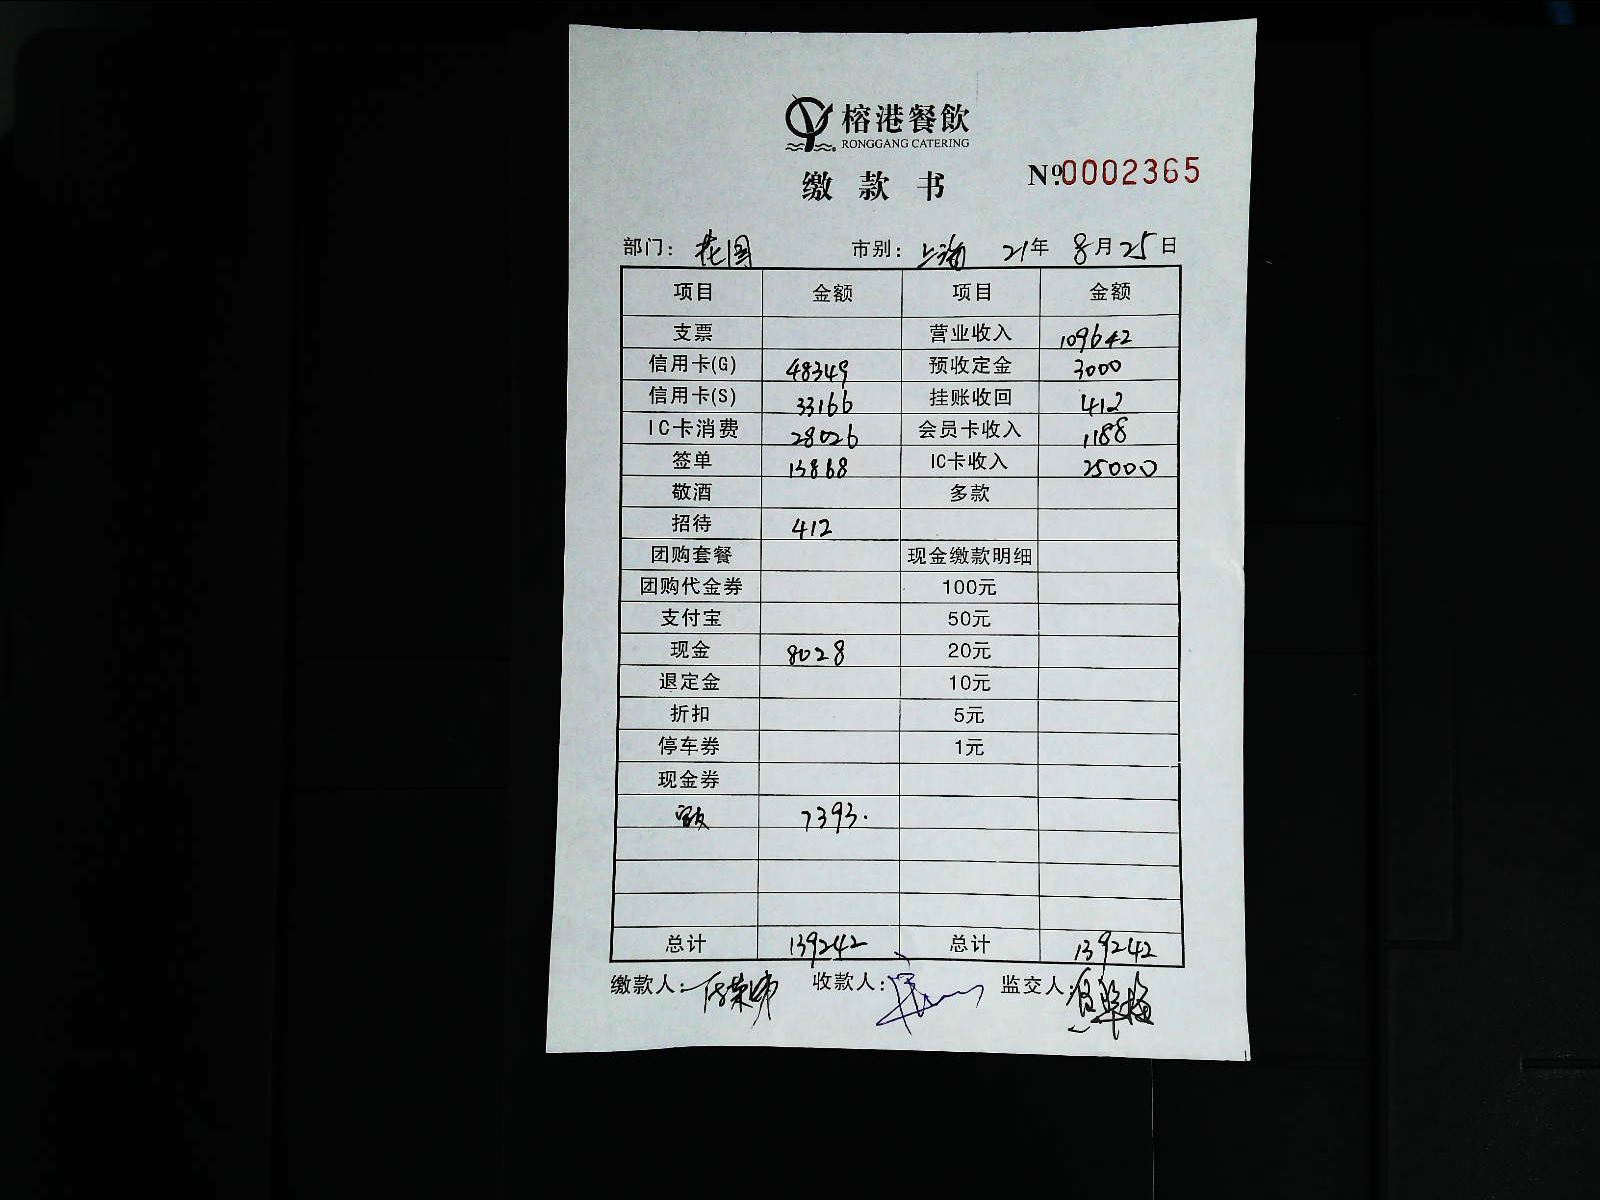 榕港餐飲
RONGGANG CATERING
缴款书 №0002365
部门：花园 市别：上海 21年 8月25日
项目 金额 项目 金额
支票 营业收入 109642
信用卡(G) 48349 预收定金 3000
信用卡(S) 33166 挂账收回 412
IC卡消费 28026 会员卡收入 1188
签单 13868 IC卡收入 25000
敬酒 多款
招待 412
团购套餐 现金缴款明细
团购代金券 100元
支付宝 50元
现金 8028 20元
退定金 10元
折扣 5元
停车券 1元
现金券
7393.
总计 139242 总计 139242
缴款人： 收款人： 监交人：